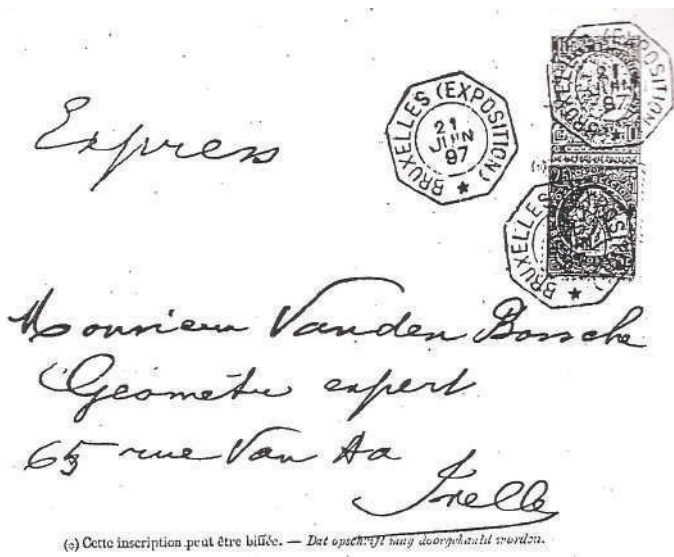 Express
BRUXELLES (EXPOSITION)
21
JUIN
97
BRUXELLES (EXPOSITION)
21
JUIN
97
BRUXELLES (EXPOSITION)
Monsieur Vanden Bossche
Géomètre expert
65 rue Van Aa
Ixelle
(o) Cette inscription peut être biffée. — Dat opschrift mag doorgehaald worden.